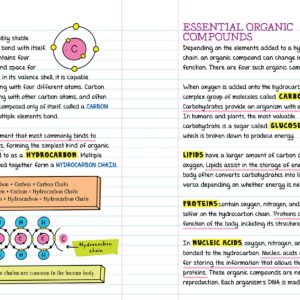 sibly stable
bond with itself
ntains four
nd space for
in its valence shell, it is capable
ng with four different atoms. Carbon
ng with other carbon atoms, and often
composed only of itself, called a CARBON
ultiple elements bond.
ment that most commonly binds to
, forming the simplest kind of organic
d to as a HYDROCARBON. Multiple
ded together form a HYDROCARBON CHAIN.
on + Carbon = Carbon Chain
on + Carbon = Hydrocarbon Chain
+ Hydrocarbon = Hydrocarbon Chain
C
H H H
C C C
H H H
Hydrocarbon
chain
n chains are common in the human body.
ESSENTIAL ORGANIC
COMPOUNDS
Depending on the elements added to a hy
chain, an organic compound can change i
function. There are four such organic com
When oxygen is added onto the hydrocar
complex group of molecules called CARBO
Carbohydrates provide an organism with e
In humans and plants, the most valuable
carbohydrate is a sugar called GLUCOSE
which is broken down to produce energy.
LIPIDS have a larger amount of carbon a
oxygen. Lipids assist in the storage of ene
body often converts carbohydrates into li
versa depending on whether energy is ne
PROTEINS contain oxygen, nitrogen, and
sulfur on the hydrocarbon chain. Proteins
function of the body, including its structur
In NUCLEIC ACIDS, oxygen, nitrogen, an
bonded to the hydrocarbon. Nucleic acids
for storing the information that allows the
proteins. These organic compounds are ne
reproduction. Each organism's DNA is mad